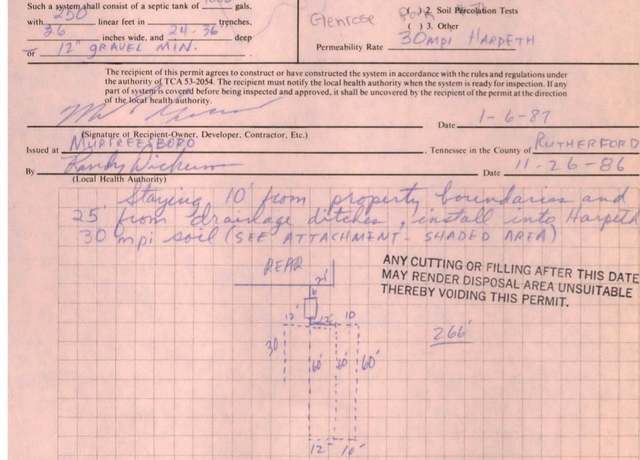 Such a system shall consist of a septic tank of 1000 gals.
with 250 linear feet in trenches,
36 inches wide, and 24-36" deep
or 12" GRAVEL MIN.
Glenrose
( ) 2. Soil Percolation Tests
( ) 3. Other
Permeability Rate 30 MPI HARPETH
The recipient of this permit agrees to construct or have constructed the system in accordance with the rules and regulations under
the authority of TCA 53-2054. The recipient must notify the local health authority when the system is ready for inspection. If any
part of system is covered before being inspected and approved, it shall be uncovered by the recipient of the permit at the direction
of the local health authority.
Date 1-6-87
(Signature of Recipient-Owner, Developer, Contractor, Etc.)
Issued at MURFREESBORO, Tennessee in the County of RUTHERFORD
By Randy Date 11-26-86
(Local Health Authority)
Staying 10' from property boundaries and
25' from drainage ditches, install into Harpeth
30 mpi soil (SEE ATTACHMENT - SHADED AREA)
REAR
ANY CUTTING OR FILLING AFTER THIS DATE
MAY RENDER DISPOSAL AREA UNSUITABLE
THEREBY VOIDING THIS PERMIT.
12' 12' 10
266'
30
60' 60'
12' 10'